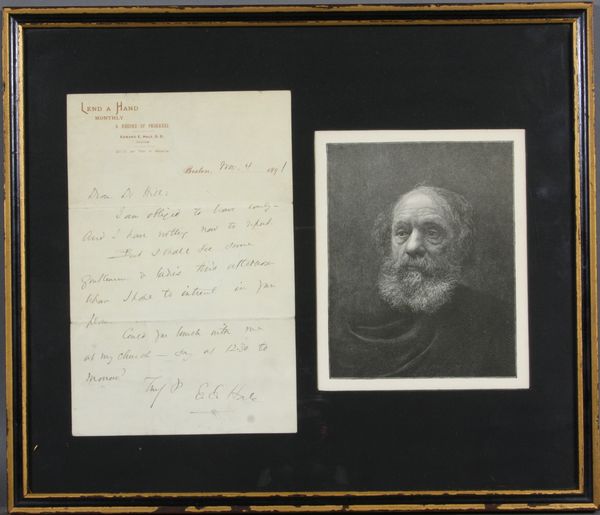 LEND A HAND
MONTHLY
A RECORD OF PROGRESS
EDWARD E. HALE, D.D.
Boston, Nov. 4 1891
Dear Dr Hill:
I am obliged to leave early –
And I have nothing new to report.
But I shall see some
gentlemen & ladies this afternoon
whom I hope to interest in your
plan.
Could you lunch with me
at my church – say at 12.30 to
morrow?
E. E. Hale